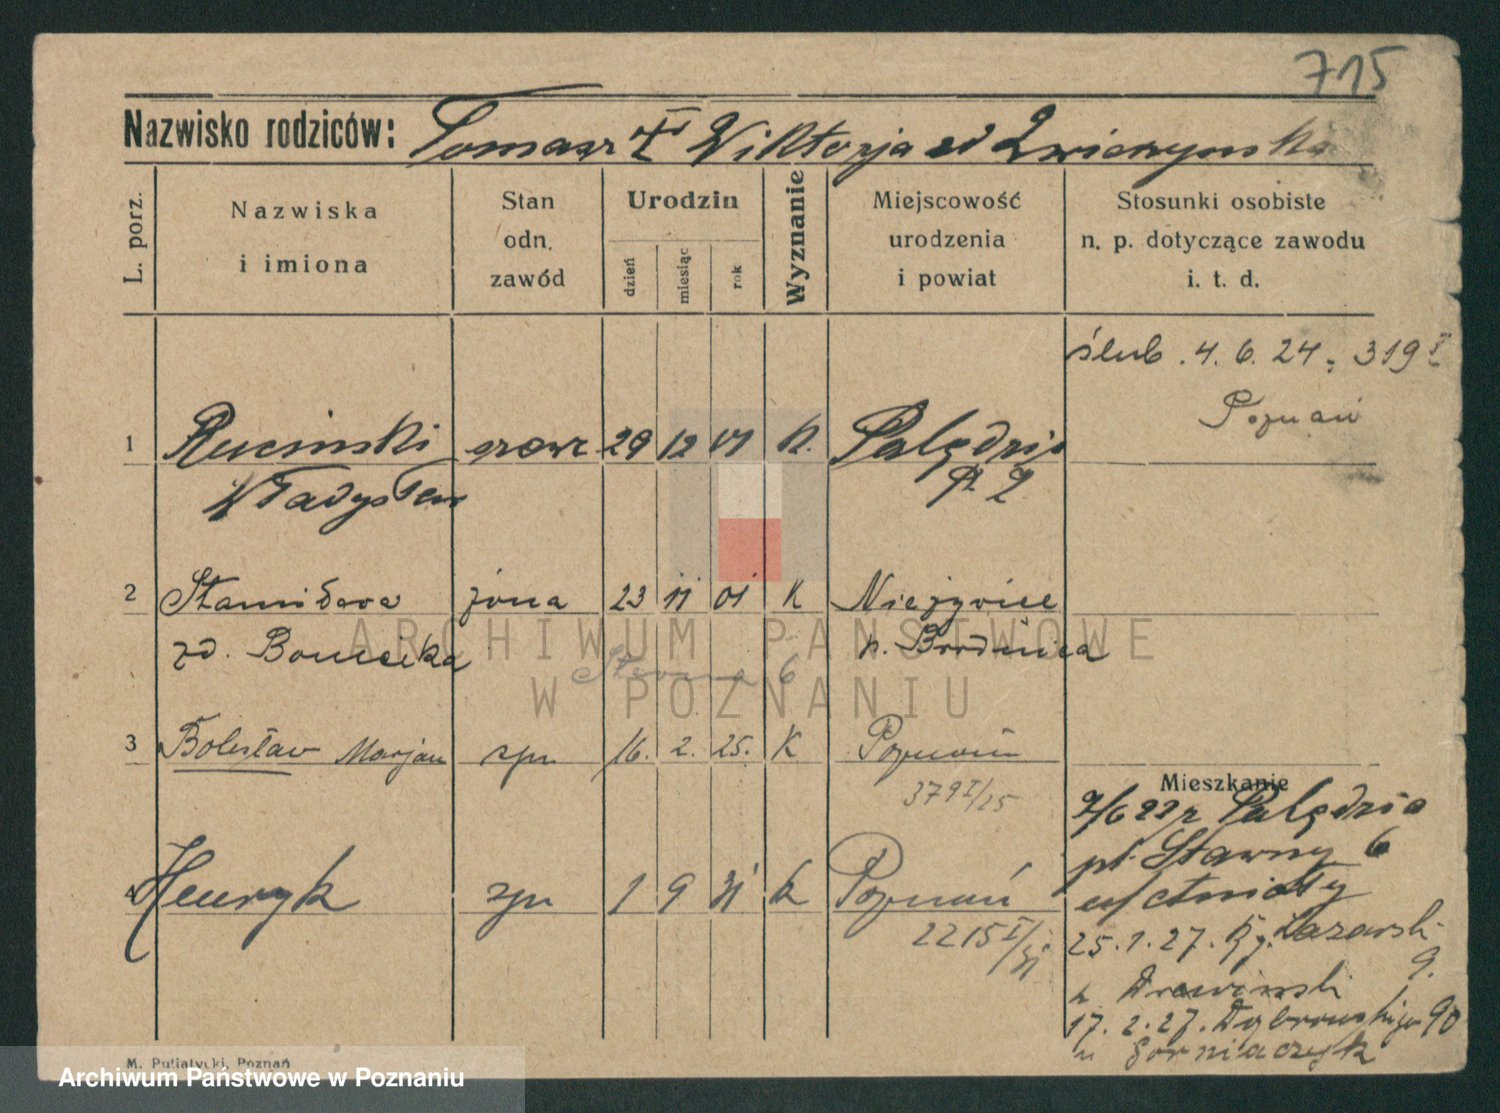 715
Nazwisko rodziców: Tomasz i Wiktorja zd Zwierzyńska
L. porz.
Nazwiska
i imiona
Stan
odn.
zawód
Urodzin
dzień
miesiąc
rok
Wyznanie
Miejscowość
urodzenia
i powiat
Stosunki osobiste
n. p. dotyczące zawodu
i. t. d.
ślub . 4. 6. 24 , 319 I
Poznań
1 Ruciński 29 12 01 k. Palędzie
Władysław
2 Stanisława żona 23 11 01 K Niezywice
zd. p. Brodnica
Stawna 6
3 Bolesław Marjan syn 16. 2. 25. K Poznań
379 I/25
4 Henryk syn 1 9 31 k Poznań
2215 I/31
Mieszkanie
7/6 22 r Palędzie
pl. Stawny 6
u/
25. 1. 27. Ryn. Łazarski
9.
u Drewiński
17. 2. 27. Dąbrowskiego 90
u Górniaczyk
M. Putiatycki, Poznań
ARCHIWUM PAŃSTWOWE
W POZNANIU
Archiwum Państwowe w Poznaniu